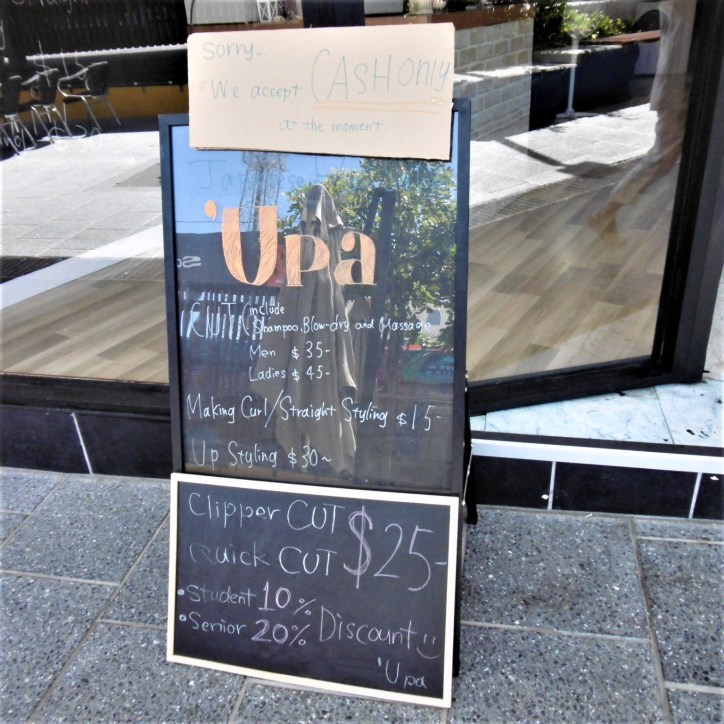 Sorry...
We accept CASH Only
at the moment
'Upa
CUT include
Shampoo, Blow-dry and Massage
Men $35-
Ladies $45-
Making Curl/Straight Styling $15-
Up Styling $30~
Clipper CUT $25-
Quick CUT
• Student 10%
• Senior 20% Discount
'Upa